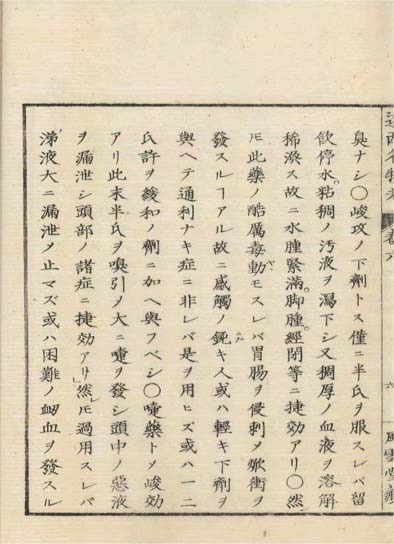 臭ナシ〇峻攻ノ下劑トス僅ニ半氏ヲ服スレバ留
飲停水。粘稠ノ汚液ヲ瀉下シ又稠厚ノ血液ヲ溶解
稀涣ス故ニ水腫緊滿。脚腫。經閉等ニ捷効アリ〇然
𪜈此藥ノ酷厲毒動モスレバ胃腸ヲ侵刺メ焮衝ヲ
發スルヿアル故ニ感觸ノ鈍キ人或ハ輕キ下劑ヲ
與ヘテ通利ナキ症ニ非レバ是ヲ用ヒズ或ハ一二
氏許ヲ緩和ノ劑ニ加ヘ與フベシ〇嚏藥トメ峻効
アリ此末半氏ヲ嗅引メ大ニ嚏ヲ發シ頭中ノ惡液
ヲ漏泄シ頭部ノ諸症ニ捷効アリ然𪜈過用スレバ
涕液大ニ漏泄メ止マズ或ハ困難ノ衂血ヲ發スル
六
風雲堂藏